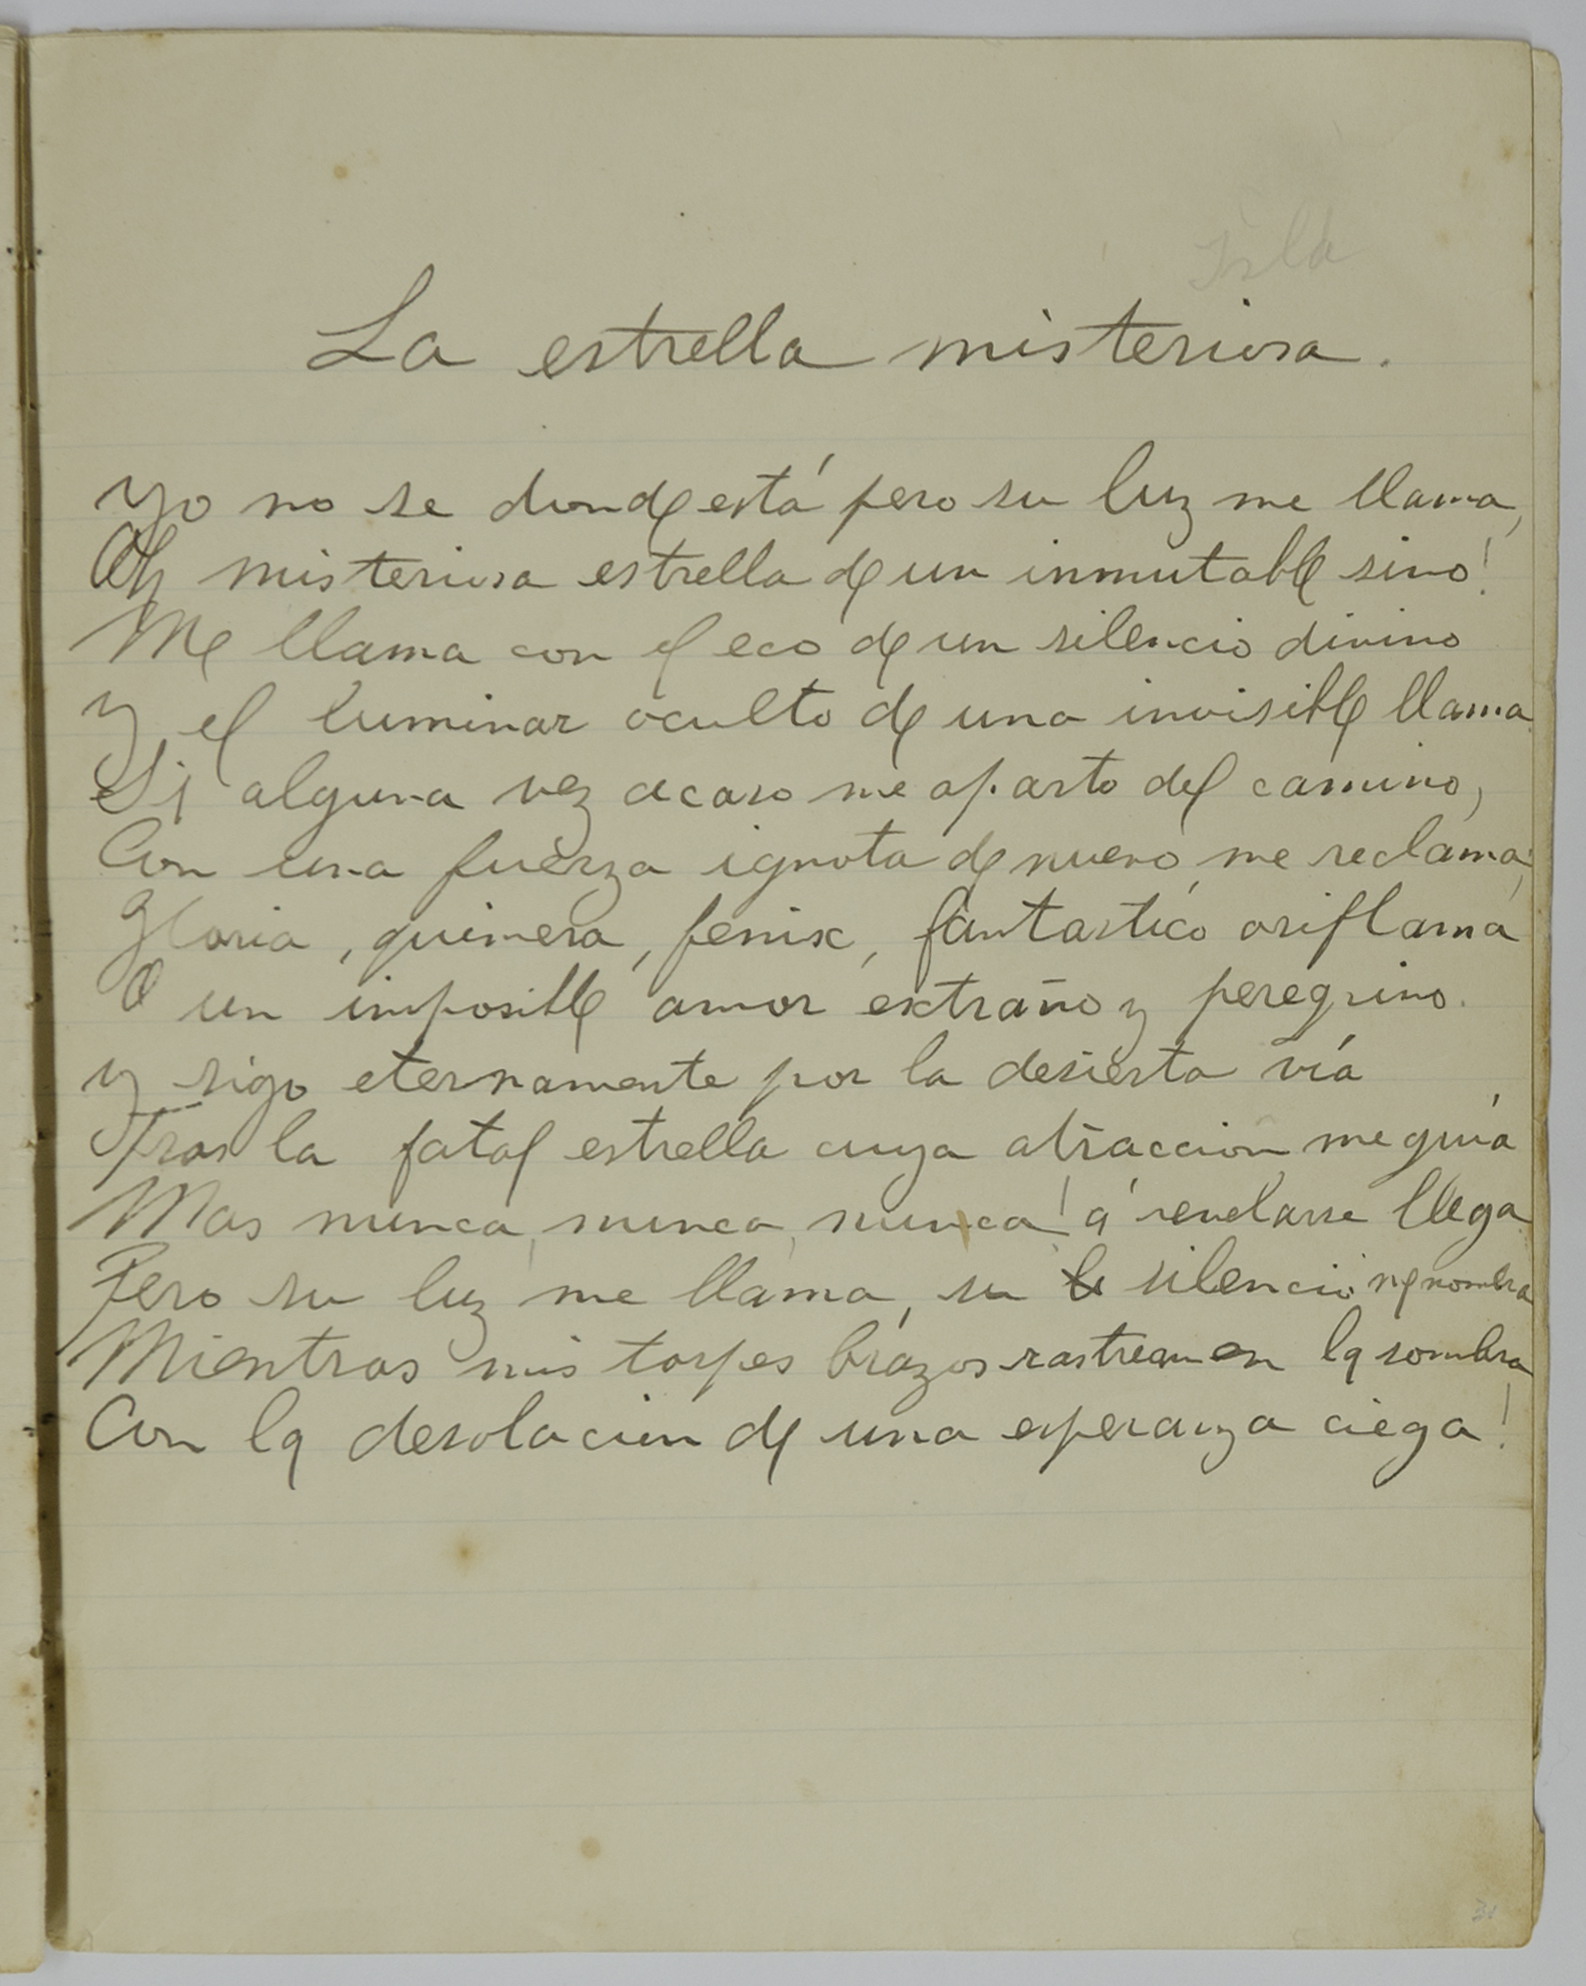 La estrella misteriosa.
Yo no se donde está pero su luz me llama,
Oh misteriosa estrella de un inmutable sino!
Me llama con el eco de un silencio divino
Y el luminar oculto de una invisible llama.
Si alguna vez acaso me aparto del camino,
Con una fuerza ignota de nuevo me reclama;
Gloria, quimera, fenix, fantastico oriflama
O un imposible amor extraño y peregrino.
Y sigo eternamente por la desierta vía
Tras la fatal estrella cuya atraccion me guía
Mas nunca, nunca, nunca! á revelarse llega
Pero su luz me llama, su silencio me nombra
Mientras mis torpes brazos rastrean en la sombra
Con la desolacion de una esperanza ciega!